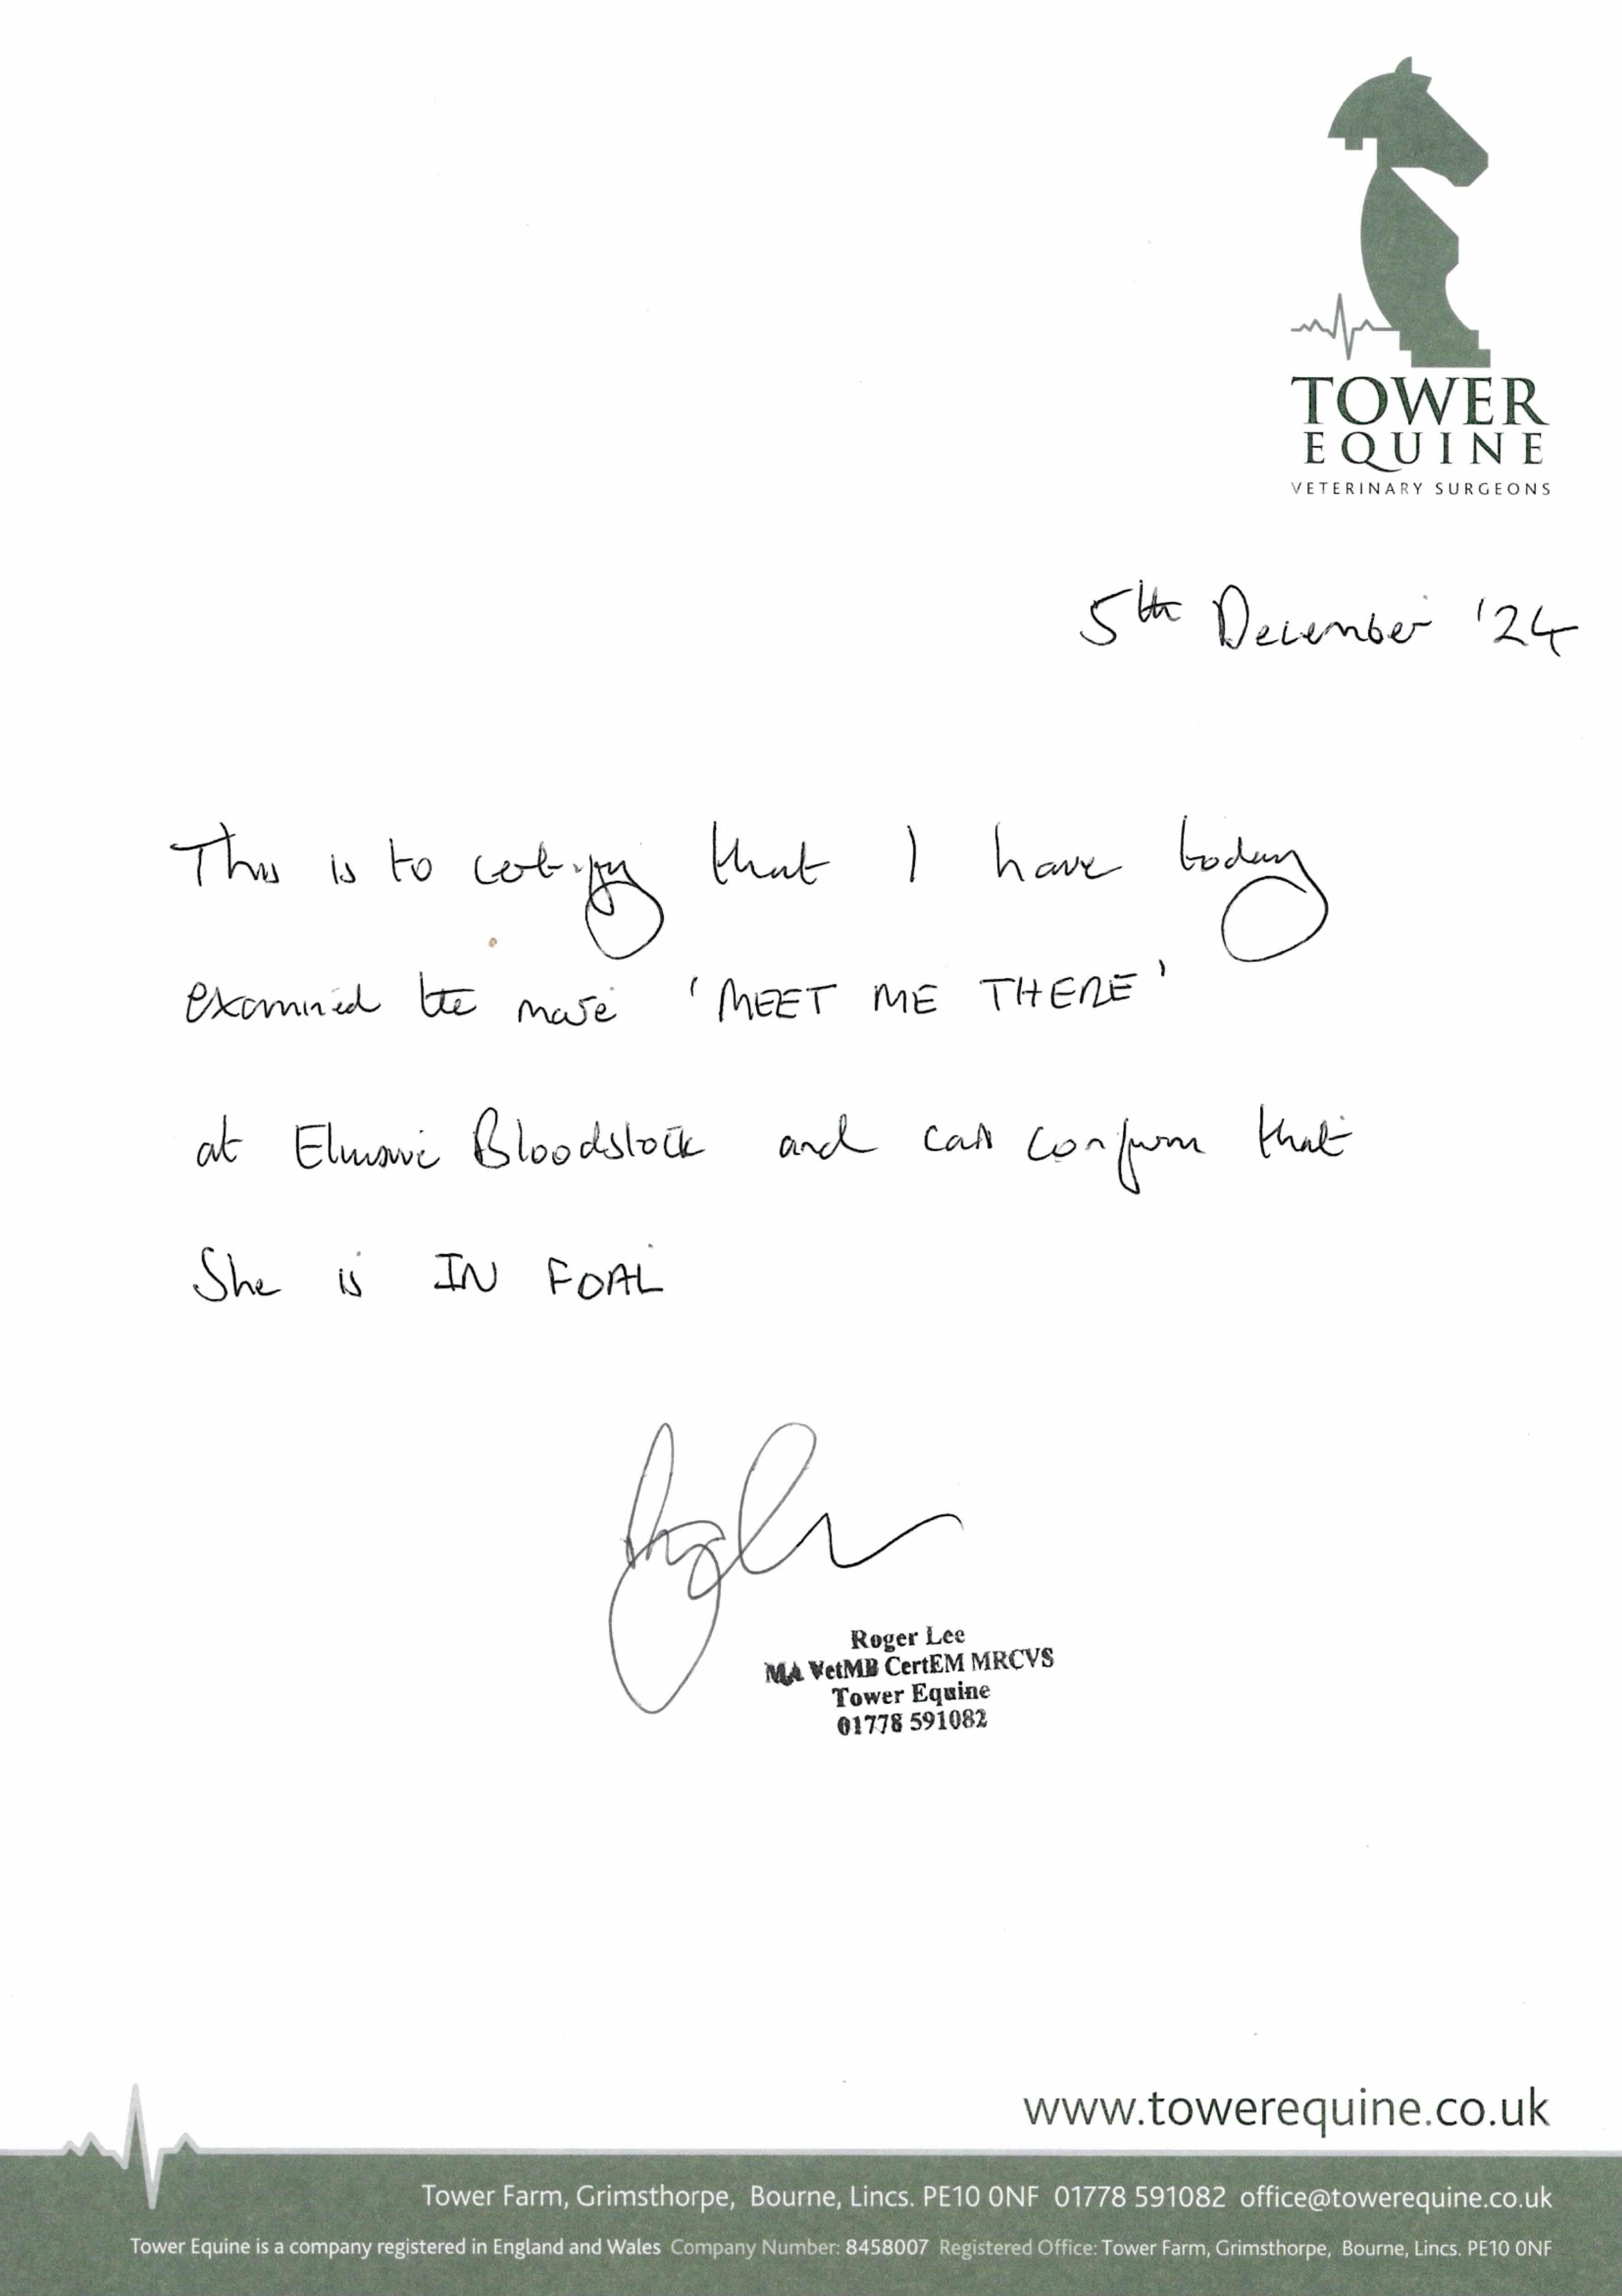 TOWER
EQUINE
VETERINARY SURGEONS
5th December '24
This is to certify that I have today
examined the mare 'MEET ME THERE'
at Elusive Bloodstock and can confirm that
She is IN FOAL
Roger Lee
MA VetMB CertEM MRCVS
Tower Equine
01778 591082
www.towerequine.co.uk
Tower Farm, Grimsthorpe, Bourne, Lincs. PE10 0NF 01778 591082 office@towerequine.co.uk
Tower Equine is a company registered in England and Wales Company Number: 8458007 Registered Office: Tower Farm, Grimsthorpe, Bourne, Lincs. PE10 0NF